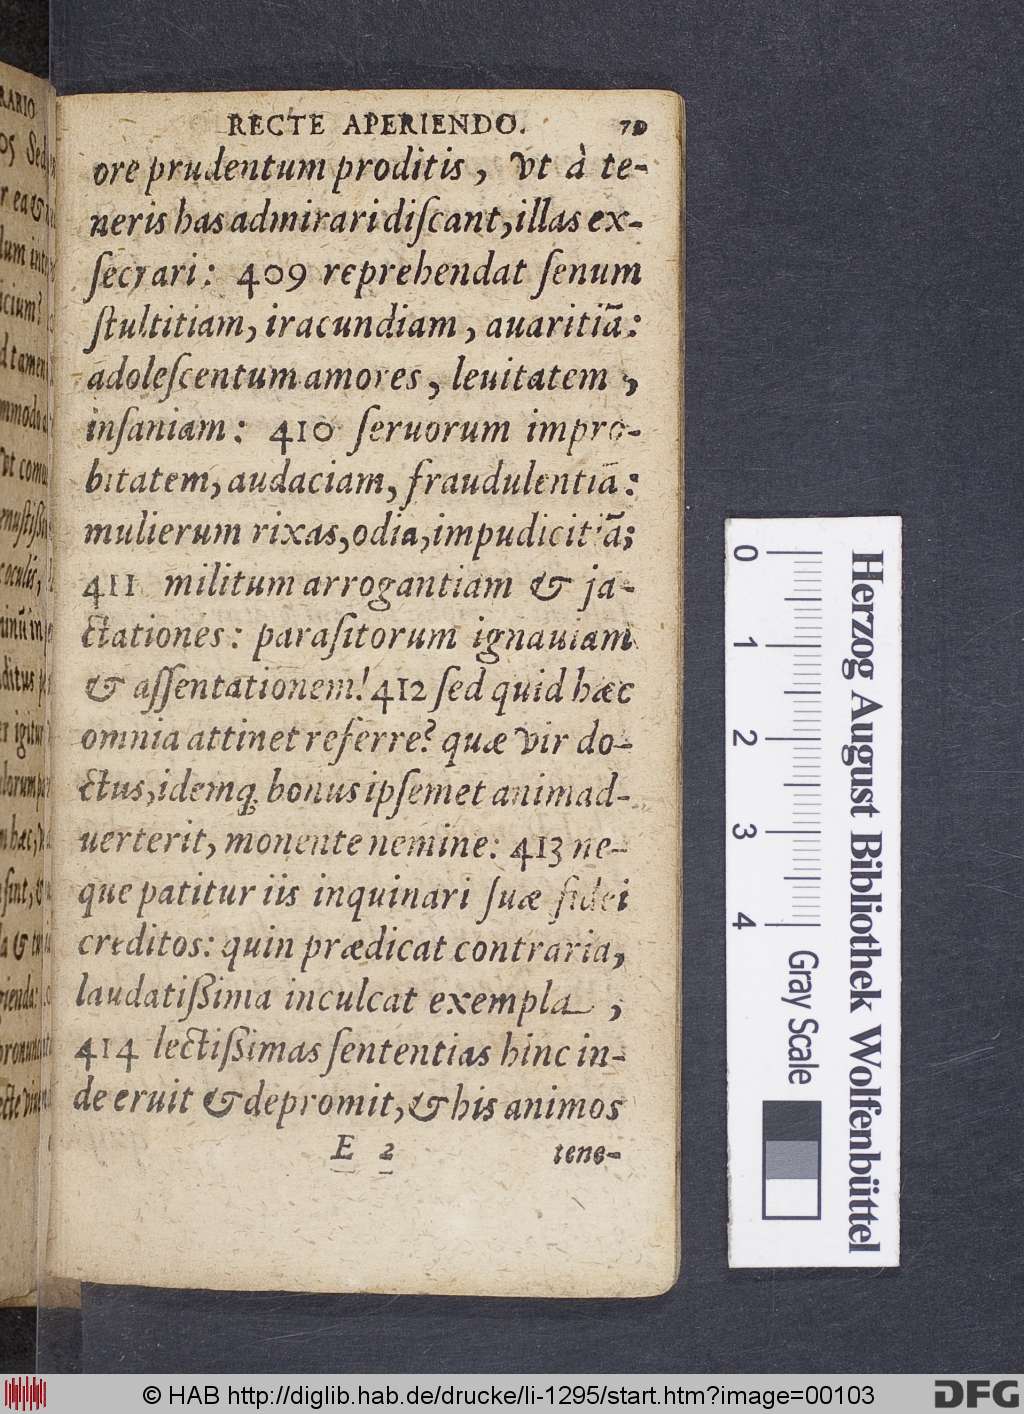 RECTE APERIENDO.
ore prudentum proditis, vt à te-
neris has admirari diſcant, illas ex-
ſecrari: 409 reprehendat ſenum
ſtultitiam, iracundiam, auaritiã:
adoleſcentum amores, leuitatem,
inſaniam: 410 ſeruorum impro-
bitatem, audaciam, fraudulentiã:
mulierum rixas, odia, impudicitiã;
411 militum arrogantiam & ja-
ctationes: paraſitorum ignauiam
& aſſentationem! 412 ſed quid hæc
omnia attinet referre? quæ vir do-
ctus, idemq; bonus ipſemet animad-
uerterit, monente nemine: 413 ne-
que patitur iis inquinari ſuæ fidei
creditos: quin prædicat contraria,
laudatiſsima inculcat exempla,
414 lectiſsimas ſententias hinc in-
de eruit & depromit, & his animos
E 2 tene-
RARIO
Herzog August Bibliothek Wolfenbüttel
0 1 2 3 4 Gray Scale
© HAB http://diglib.hab.de/drucke/li-1295/start.htm?image=00103
DFG